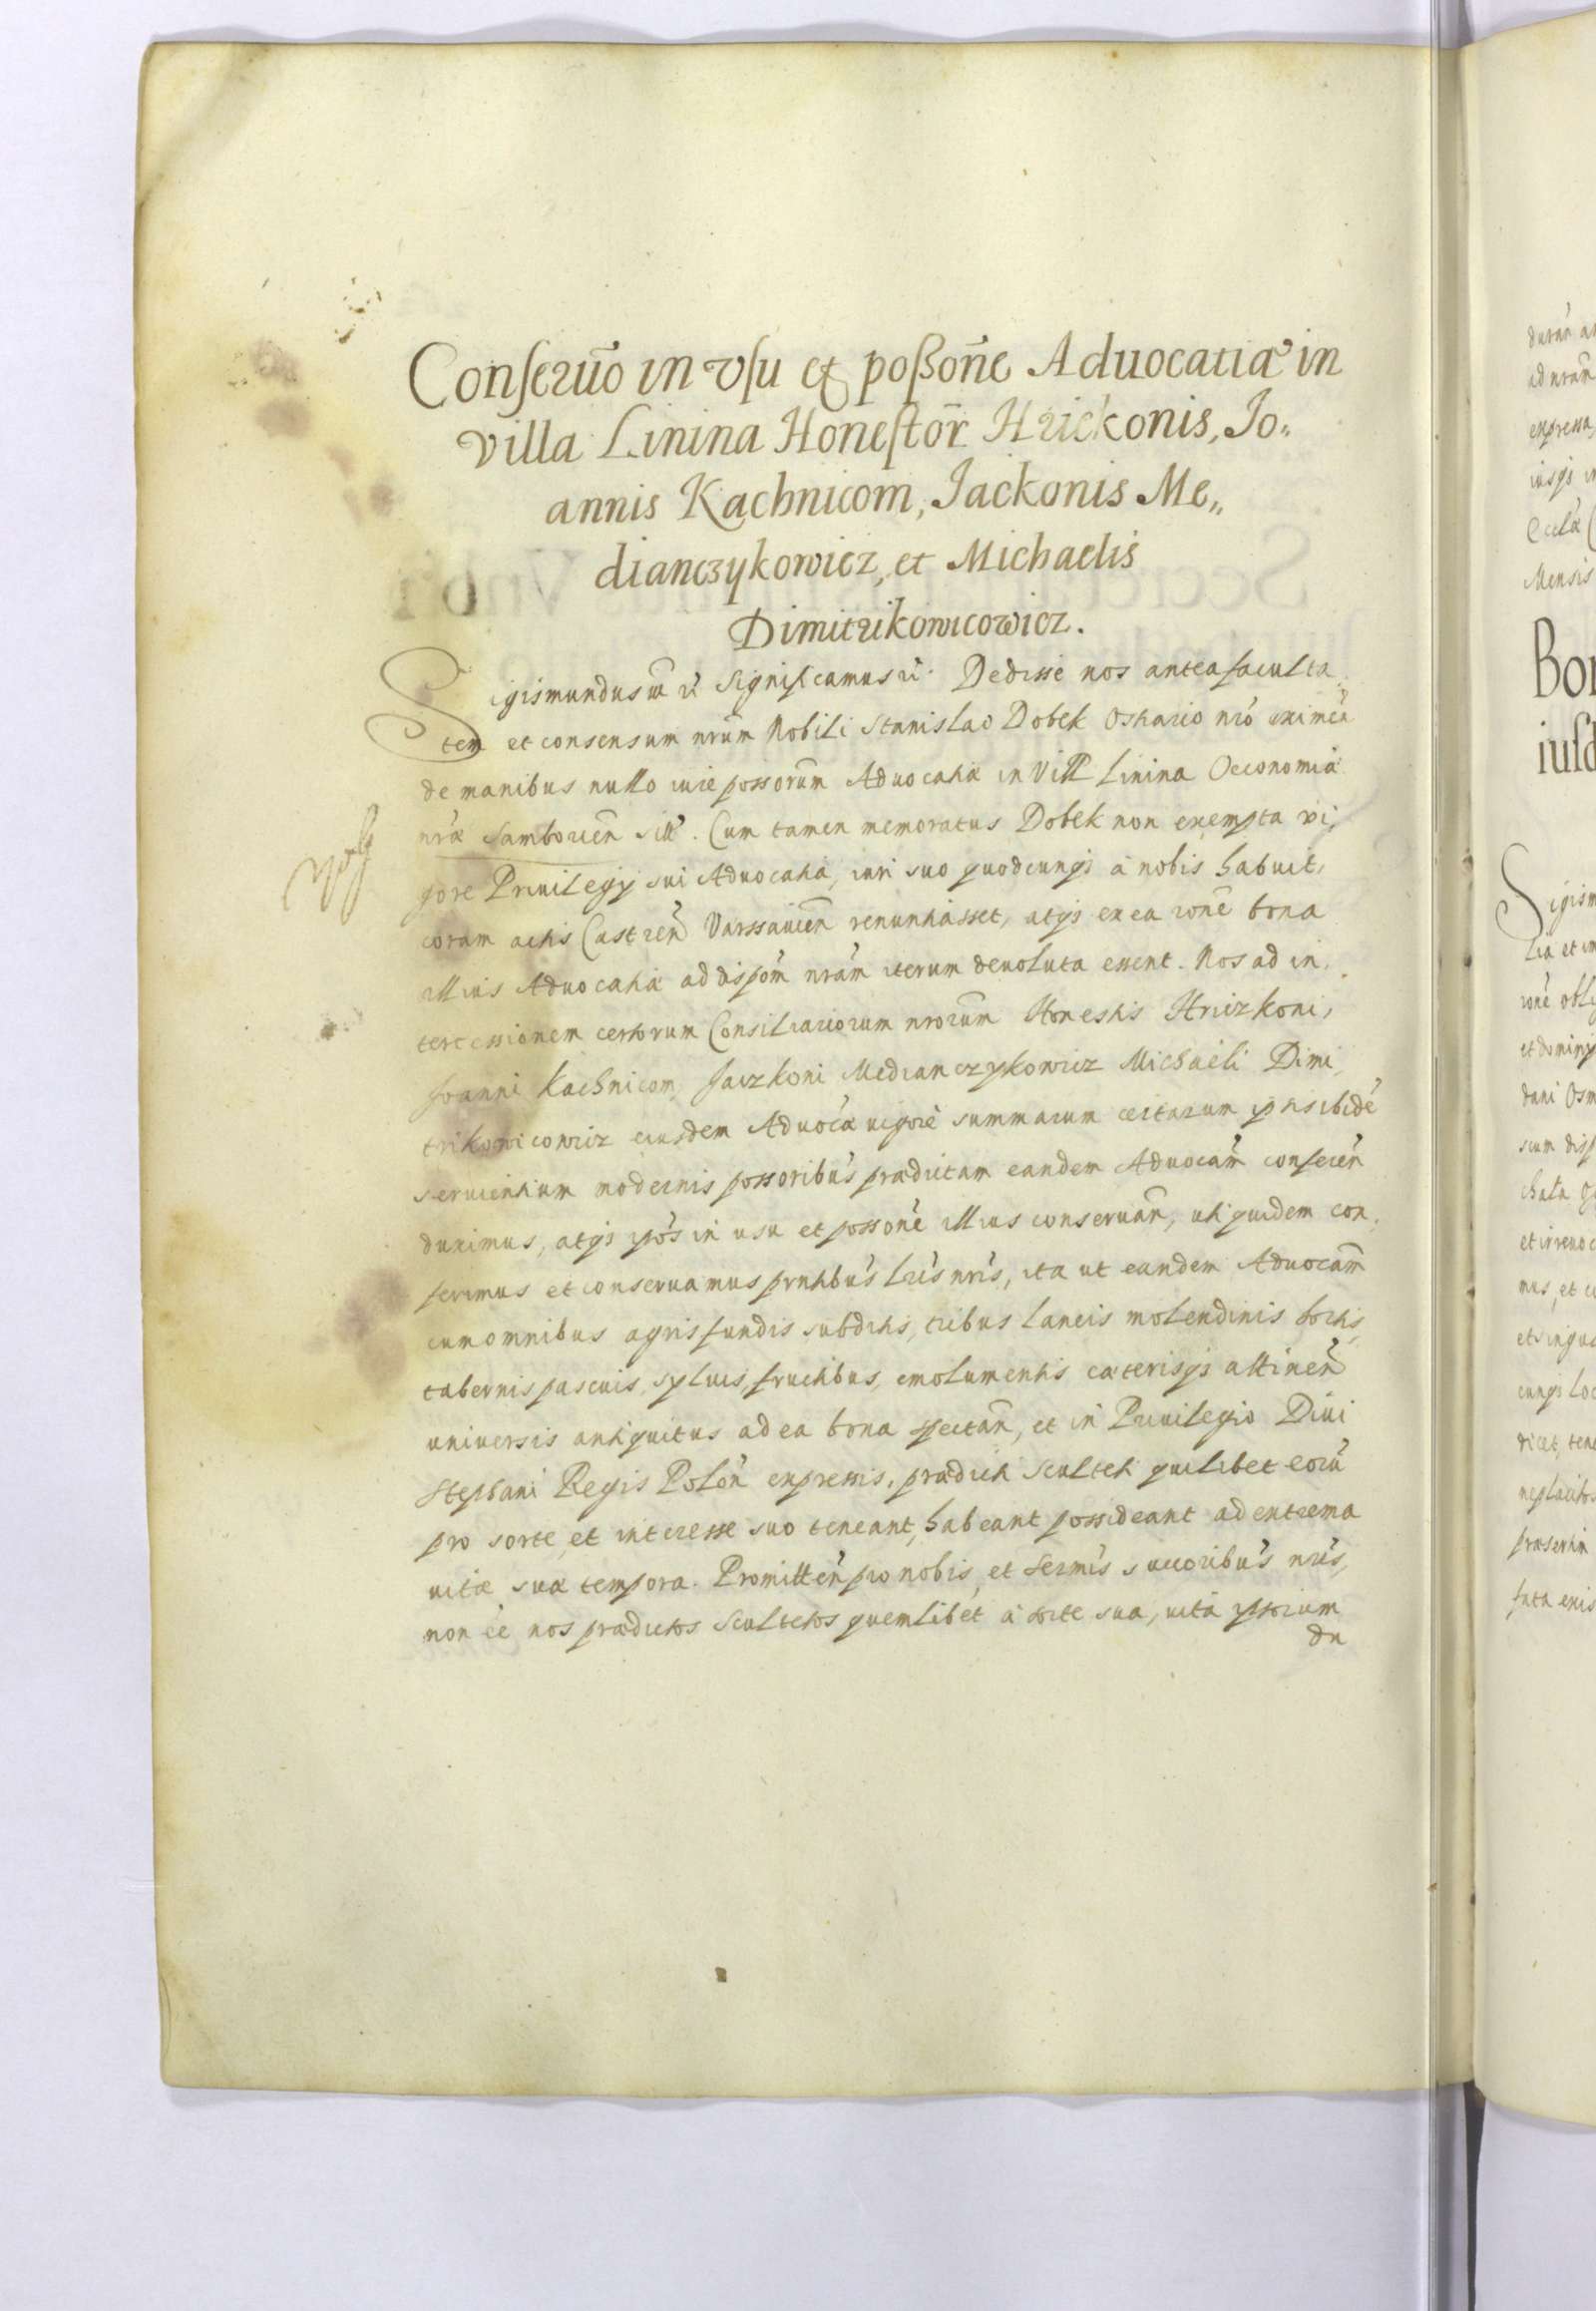 Conseruõ in vsu et poßoñe Aduocatiæ in
villa Linina Honestor̃ Hrickonis, Jo„
annis Kachnicom, Jackonis Me„
dianczykowicz, et Michaelis
Dimitrikowicowicz.
Sigismundus Significamus Dedisse nos antea faculta
tem et consensum nrũm Nobili Stanislao Dobek Ostiario nrõ eximeñ
de manibus nullo iure possorũm Aduocatiæ in Vill Linina Oeconomiæ
nræ Samborieñ sitt. Cum tamen memoratus Dobek non exempta vi,
gore Priuilegij sui Aduocatia, iuri suo quodcunqȝ à nobis habuit,
coram actis Castreñ Varssauieñ renuntiasset, atqȝ ex ea roñe bona
illius Aduocatiæ ad dispõm nrãm iterum deuoluta essent. Nos ad in,
tercessionem certorum Consiliariorum nrorũm Honestis Hrizkoni,
Joanni Kachnicom, Jaczkoni Medianczykowicz Michaëli Dimi,
trikowicowicz eiusdem Aduocãæ uigore summarum certarum ipsis ibidẽ
seruientium modernis possoribus prædictam eandem Aduocãm confereñ
duximus, atqȝ ipõs in usu et possoñe illius conseruañ, uti quidem con,
ferimus et conseruamus pñtibus Lris nris, ita ut eandem Aduocãm
cum omnibus agris fundis subditis, tribus laneis molendinis hortis,
tabernis pascuis, syluis, fructibus, emolumentis cæterisqȝ attineñ
uniuersis antiquitus ad ea bona spectañ, et in Priuilegio Diui
Stephani Regis Poloñ expressis, prædicti Sculteti quilibet eorũ
pro sorte, et interesse suo teneant, habeant possideant ad extrema
uitæ suæ tempora. Promitteñ pro nobis, et Sermis succoribus nris,
non eẽ nos prædictos Scultetos quemlibet à sorte sua, uita ipsorum
du
durañ
ad nrãm
expressa,
iusqȝ
Mensis
Bon
iusd
Sigism
lia et im
roñe obli
et dominij
dani Osm
cum disp
et irreuoc
mus, et
et singu
cunqȝ loc
dicet, tene
neplacitos
præsertim
fata exis